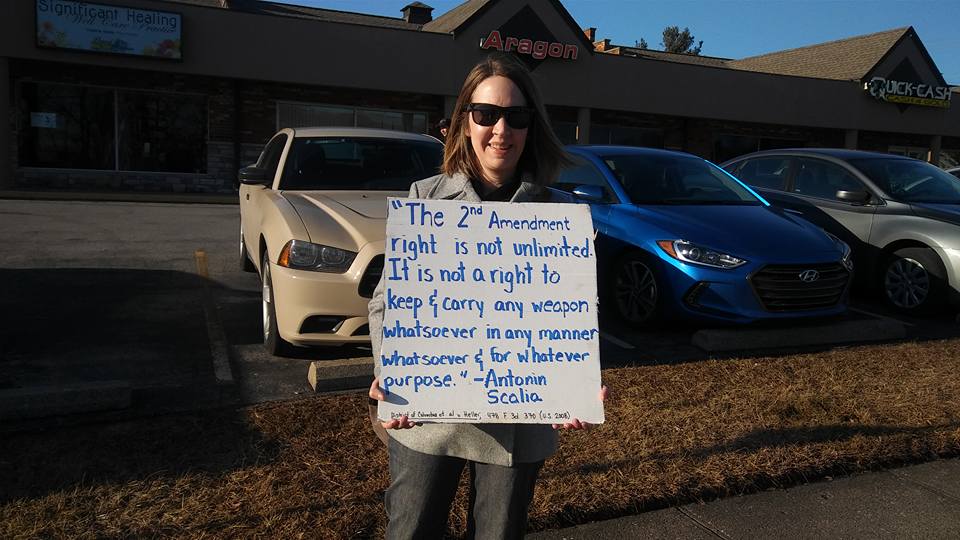 Significant Healing
Well Care Practice
Aragon
QUICK-CASH
"The 2nd Amendment
right is not unlimited.
It is not a right to
keep & carry any weapon
whatsoever in any manner
whatsoever & for whatever
purpose." -Antonin
Scalia
District of Columbia et. al v. Heller, 478 F. 3d 370 (U.S. 2008)